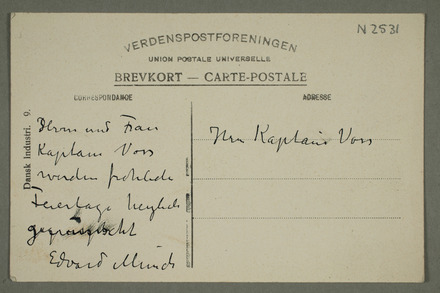 N 2531
VERDENSPOSTFORENINGEN
UNION POSTALE UNIVERSELLE
BREVKORT — CARTE-POSTALE
CORRESPONDANCE
ADRESSE
Dansk Industri. 9.
Herrn und Frau
Kaptain Voss
werden fröhliche
Feiertage herzlich
gewünscht
Edvard Munch
Herr Kaptain Voss